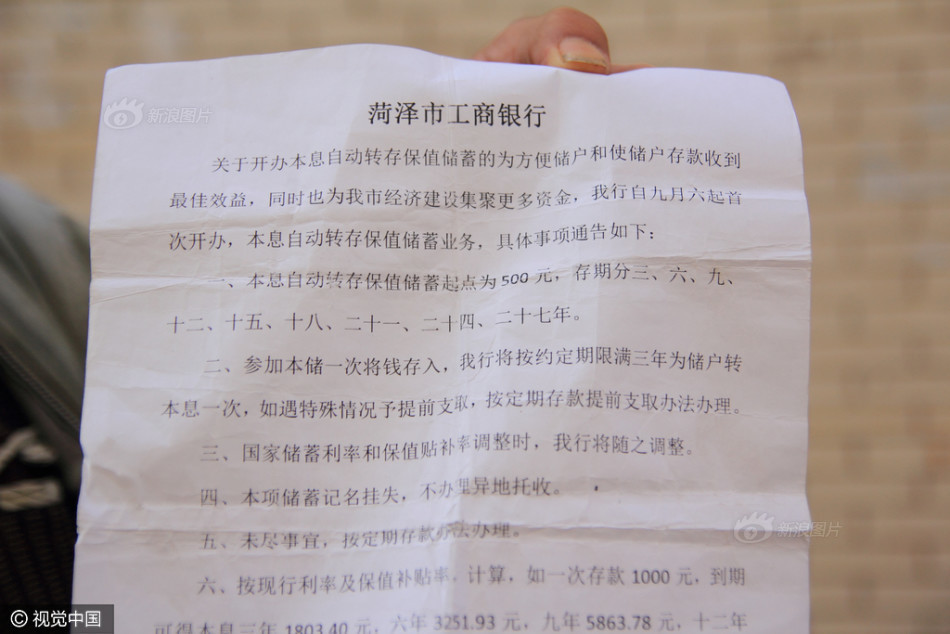 新浪图片
菏泽市工商银行
关于开办本息自动转存保值储蓄的为方便储户和使储户存款收到
最佳效益，同时也为我市经济建设集聚更多资金，我行自九月六起首
次开办，本息自动转存保值储蓄业务，具体事项通告如下：
一、本息自动转存保值储蓄起点为500元，存期分三、六、九、
十二、十五、十八、二十一、二十四、二十七年。
二、参加本储一次将钱存入，我行将按约定期限满三年为储户转
本息一次，如遇特殊情况予提前支取，按定期存款提前支取办法办理。
三、国家储蓄利率和保值贴补率调整时，我行将随之调整。
四、本项储蓄记名挂失，不办理异地托收。
五、未尽事宜，按定期存款办法办理。
新浪图片
六、按现行利率及保值补贴率，计算，如一次存款1000元，到期
可得本息三年1803.40元，六年3251.93元，九年5863.78元，十二年
©视觉中国